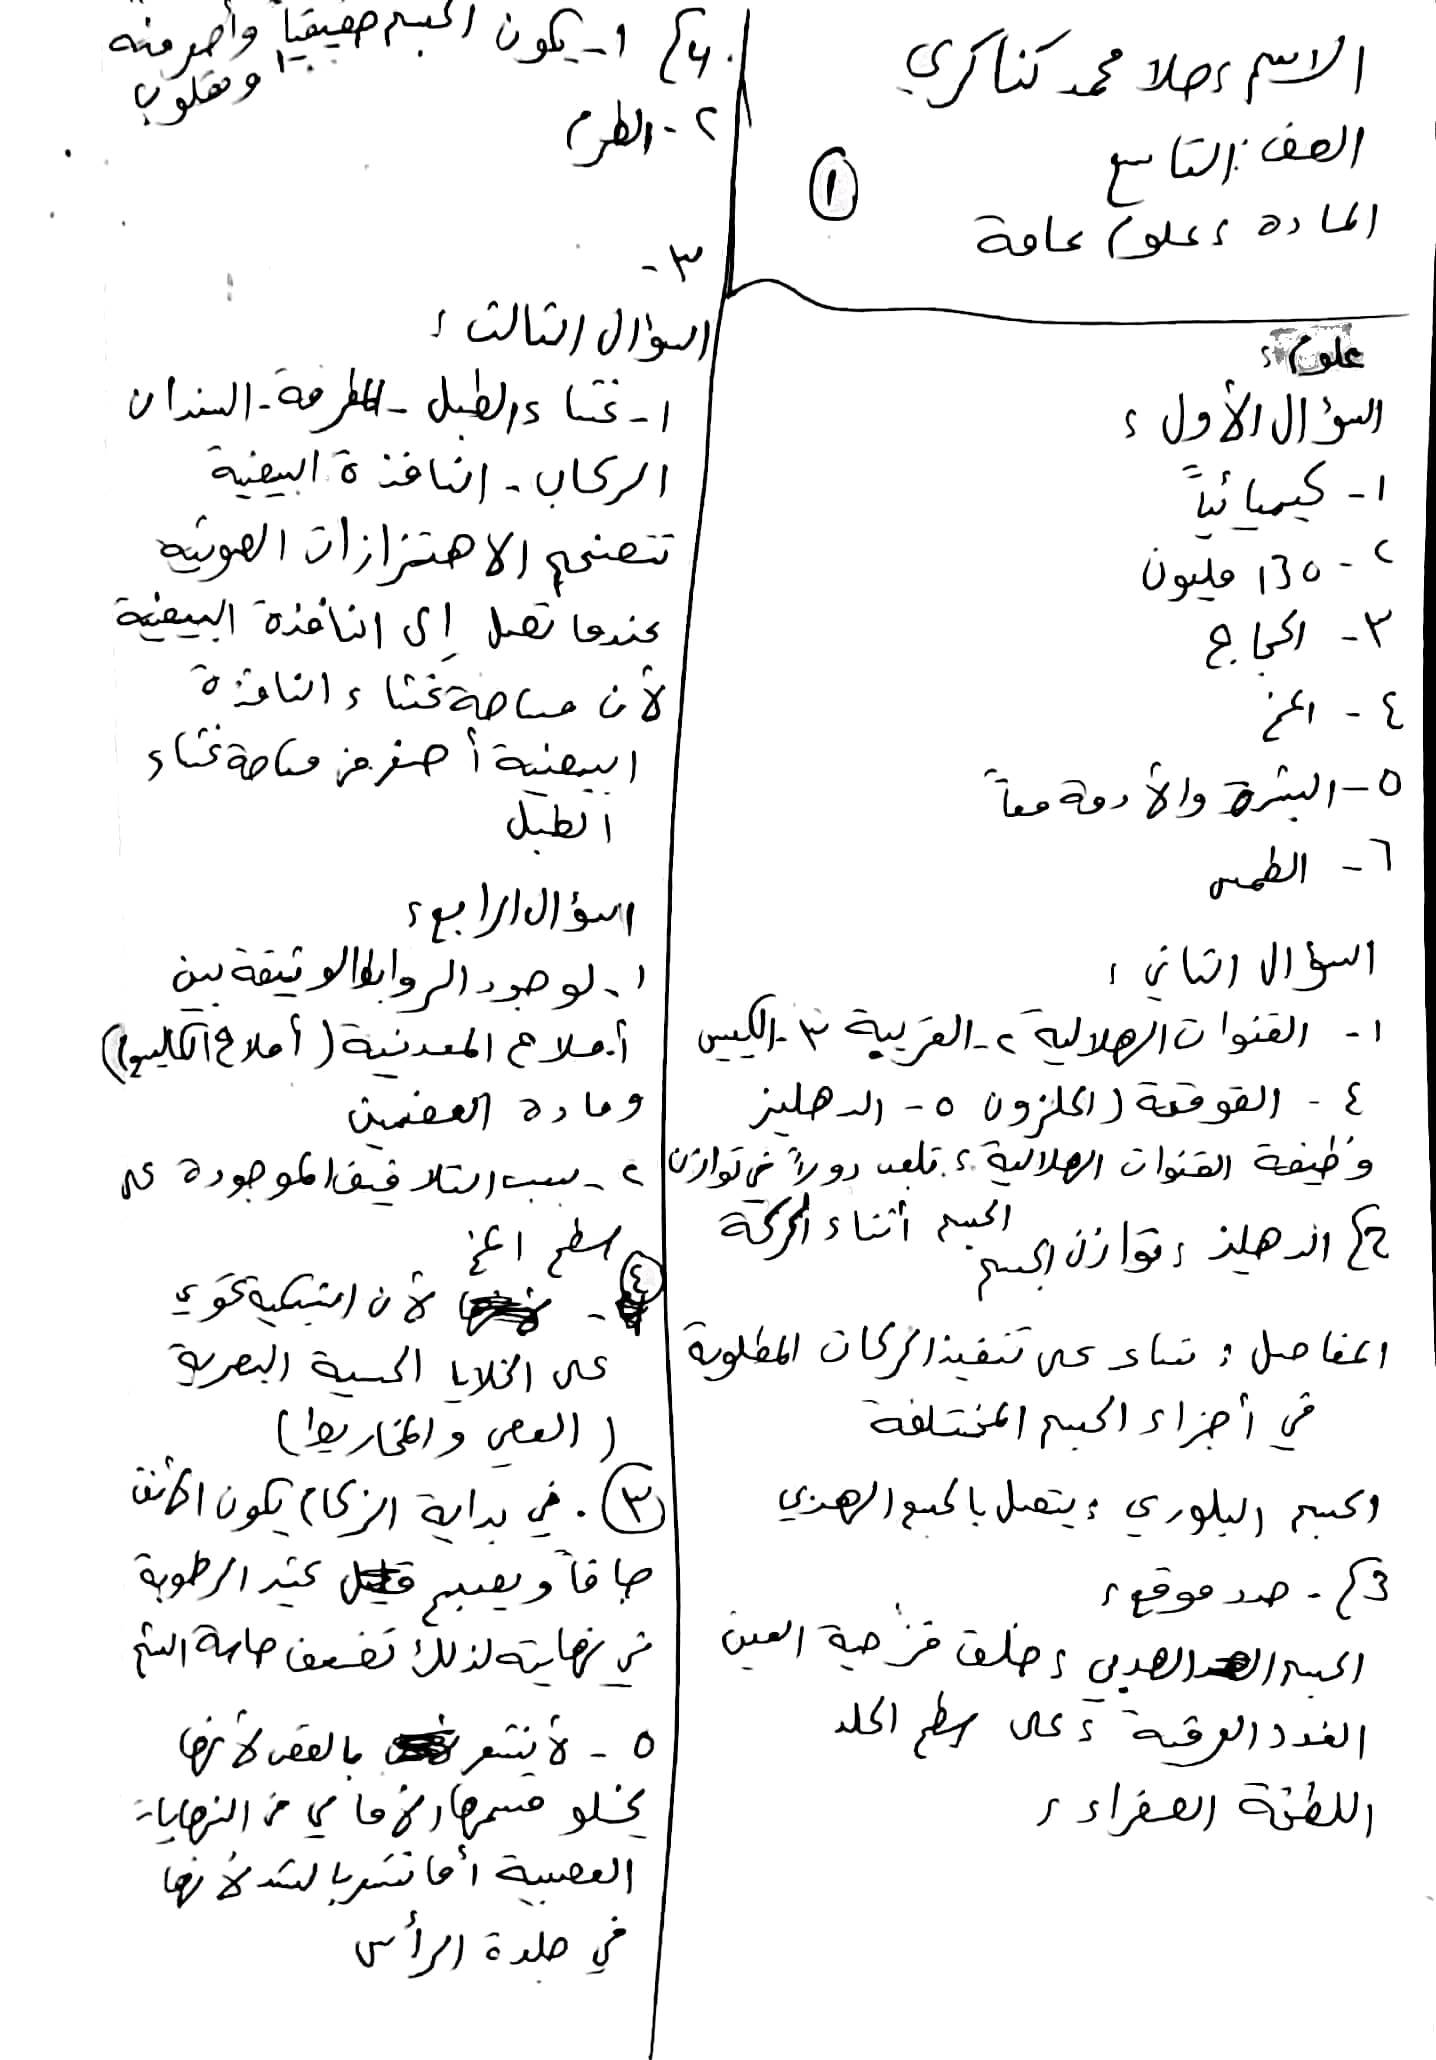 الاسم : حلا محمد كناكري
الصف : التاسع
المادة : علوم عامة
١
علوم :
السؤال الأول :
١- كيميائياً
٢- 130 مليون
٣- الحجاج
٤- المخ
٥- البشرة والأدمة معاً
٦- الطمس
السؤال الثاني :
١- القنوات الهلالية ٢- القريبة ٣- الكييس
٤- القوقعة (الحلزون ٥- الدهليز
وظيفة القنوات الهلالية : تلعب دوراً في توازن
الجسم أثناء الحركة
2} الدهليز : توازن الجسم
المفاصل : تساعد على تنفيذ الحركات المطلوبة
في أجزاء الجسم المختلفة
الجسم البلوري : يتصل بالجسم الهدبي
3} - حدد موقع :
الجسم الهدبي : خلف قزحية العين
الغدد العرقية : على سطح الجلد
اللطخة الصفراء :
4} ١- يكون الجسم حقيقياً وأصغر منه
ومقلوب
٢- الطرم
٣-
السؤال الثالث :
١- غشاء الطبل - المطرقة - السندان
الركاب - النافذة البيضية
تتضخم الاهتزازات الصوتية
عندما تصل إلى النافذة البيضية
لأن مساحة غشاء النافذة
البيضية أصغر من مساحة غشاء
الطبل
السؤال الرابع :
١- لوجود الروابط الوثيقة بين
أملاح المعدنية (أملاح الكالسيوم)
ومادة العظمين
٢- بسبب التلافيف الموجودة على
سطح المخ
٤ - لأن الشبكية تحوي
على الخلايا الحسية البصرية
(العصي والمخاريط)
٣ . في بداية الزكام يكون الأنف
جافاً ويصبح كثير الرطوبة
في نهايته لذلك تضعف حاسة الشم
٥ - لا نشعر بالقص لأنها
يخلو قسمها الأمامي من النهايات
العصبية أما نشعر بالشد لأنها
في جلدة الرأس